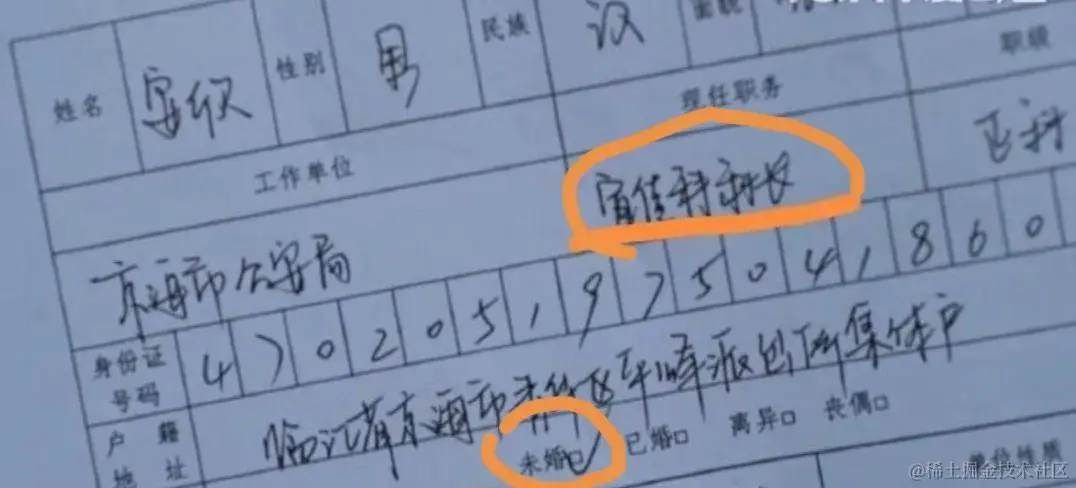 姓名 安欣 性别 男 民族 汉 面貌 职级
工作单位 现任职务 正科
京海市公安局 宣传科科长
身份证号码 4 7 0 2 0 5 1 9 7 5 0 4 1 8 6 0
户籍地址 临江省京海市 区 派出所集体户
未婚☑ 已婚□ 离异□ 丧偶□
单位性质
@稀土掘金技术社区